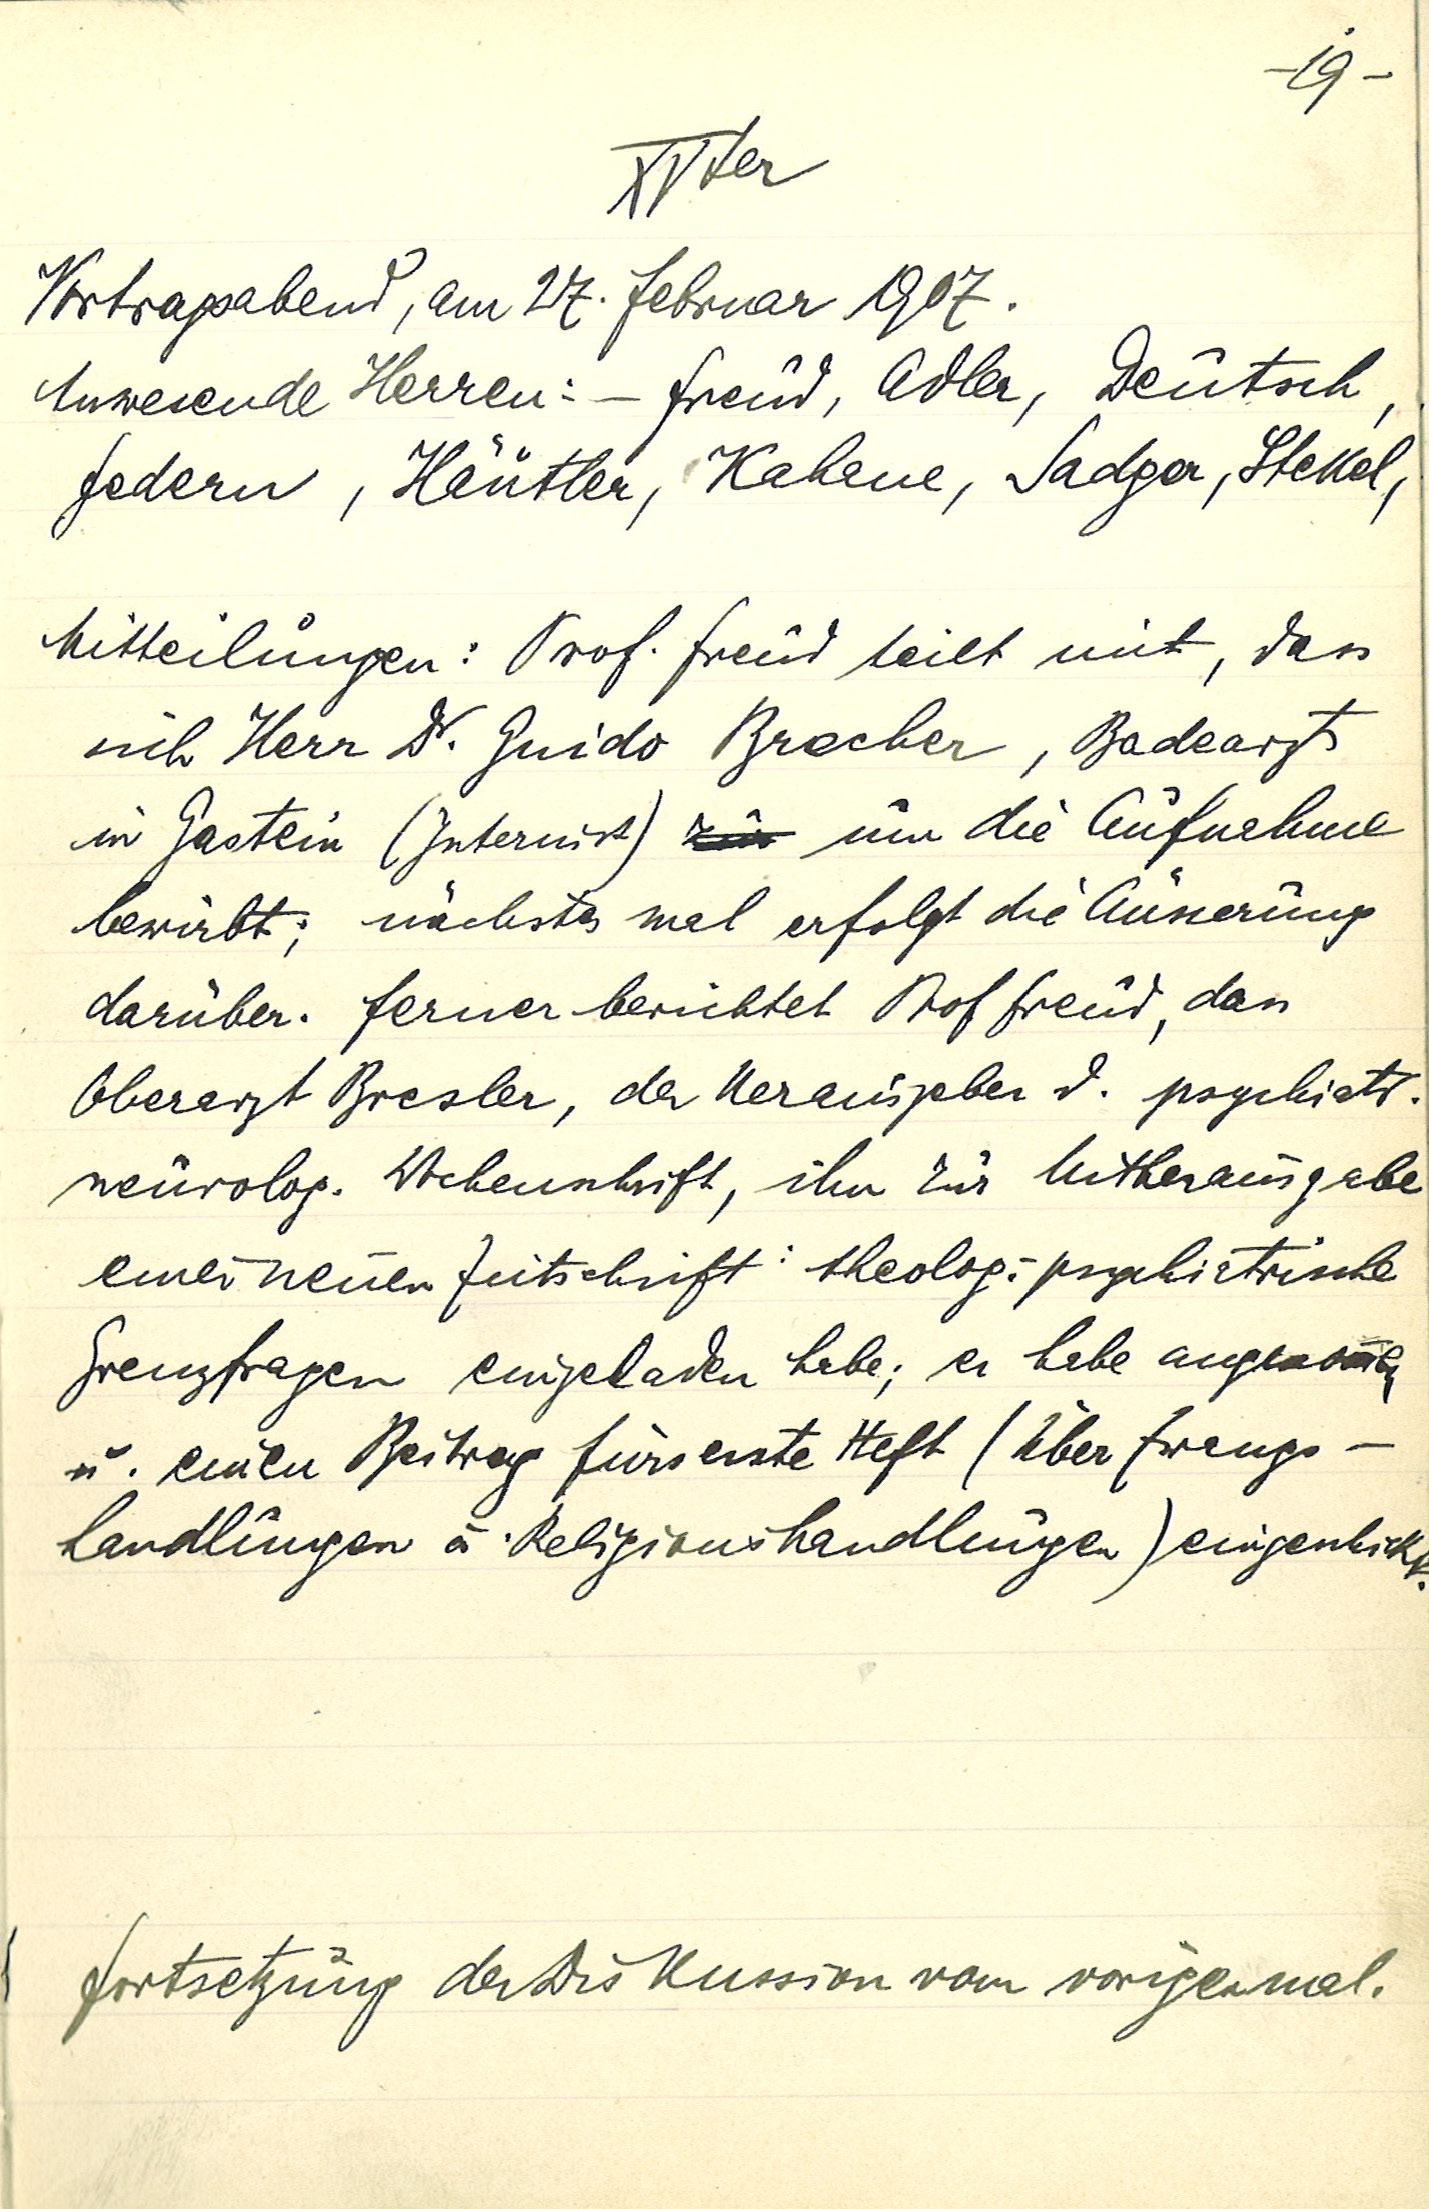 -19-
XVter
Vortragsabend, am 27. Februar 1907.
Anwesende Herren: – Freud, Adler, Deutsch,
Federn, Häutler, Kahane, Sadger, Stekel,
Mitteilungen: Prof. Freud teilt mit, dass
sich Herr Dr. Guido Brecher, Badearzt
in Gastein (Internist) um die Aufnahme
bewirbt; nächstes mal erfolgt die Äusserung
darüber. Ferner berichtet Prof Freud, dass
Oberarzt Bresler, der Herausgeber d. psychiatr.
neurolog. Wochenschrift, ihn zur Mitherausgabe
einer neuen Zeitschrift: theolog.-psychiatrische
Grenzfragen eingeladen habe; er habe angenom̅en
u. einen Beitrag fürs erste Heft (Über Zwangs-
handlungen u. Religionshandlungen) eingeschickt.
Fortsetzung der Diskussion vom vorigenmal.